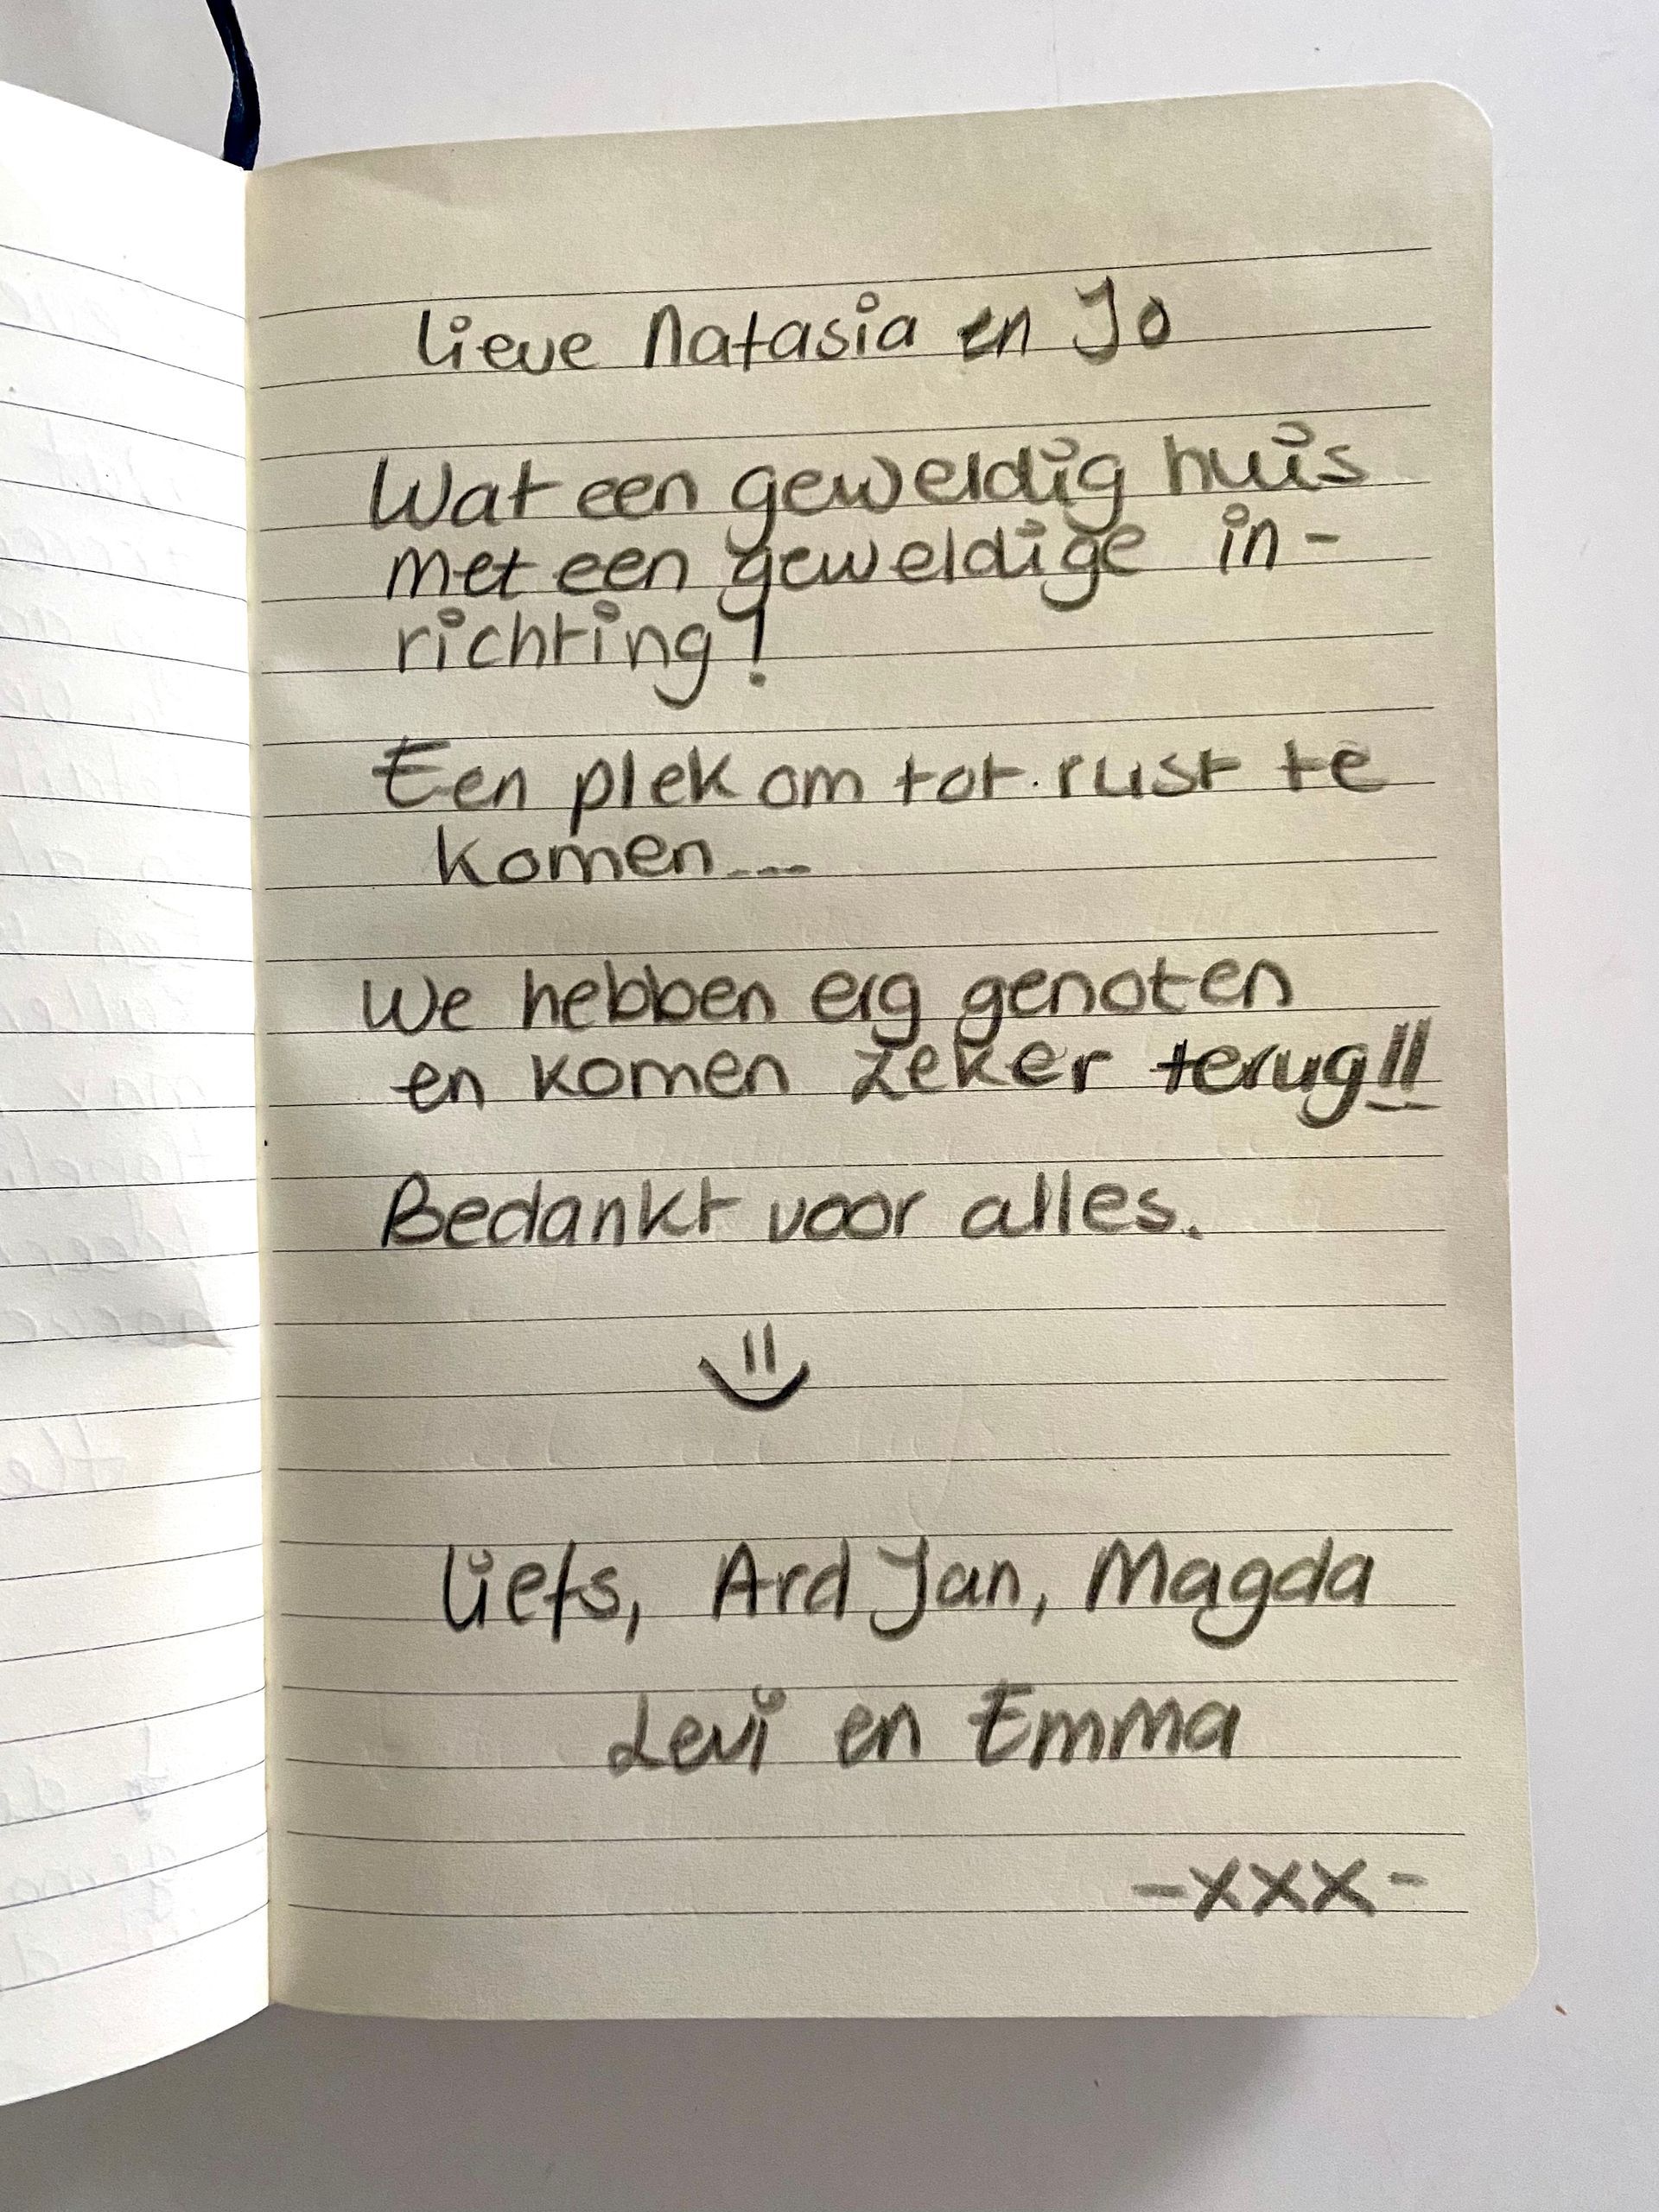 Lieve Natasia en Jo
Wat een geweldig huis
met een geweldige in-
richting!
Een plek om tot rust te
komen...
We hebben erg genoten
en komen zeker terug!!
Bedankt voor alles.
Liefs, Ard Jan, Magda
Levi en Emma
-xxx-